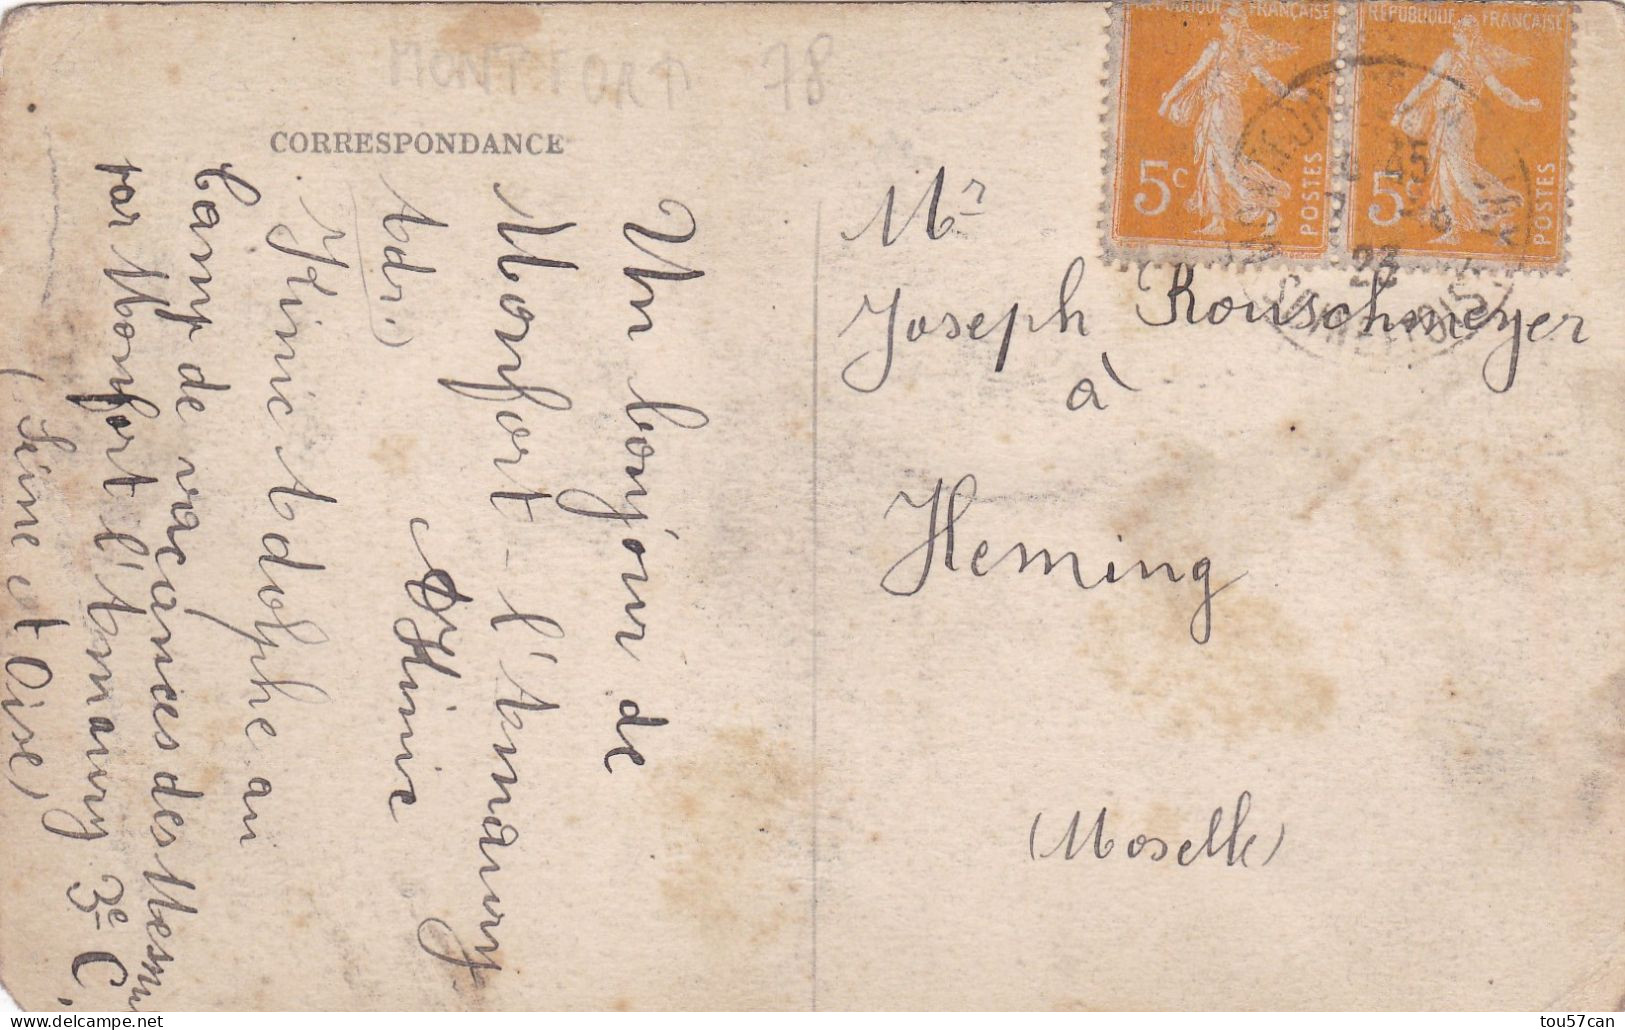 MONTFORT 78
CORRESPONDANCE
Un bonjour de
Monfort-l'Amaury
A Himic
Adr.
Himic Adolphe au
Camp de vacances des Mesnuls
par Monfort l'Amaury 3e C.
(Seine et Oise)
REPUBLIQUE FRANÇAISE
5c
POSTES
REPUBLIQUE FRANÇAISE
5c
POSTES
Mr
Joseph Rouschmeyer
à
Heming
(Moselle)
tou57can